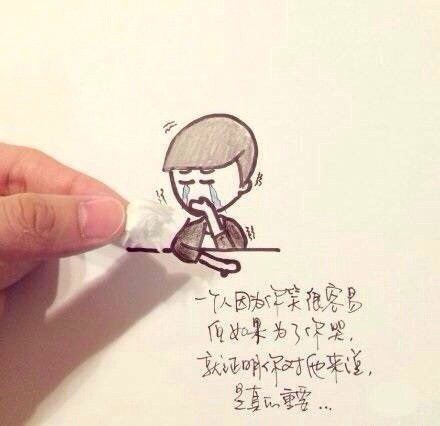 一个人因为你笑很容易
但如果为了你哭,
就证明你对他来说,
是真的重要...